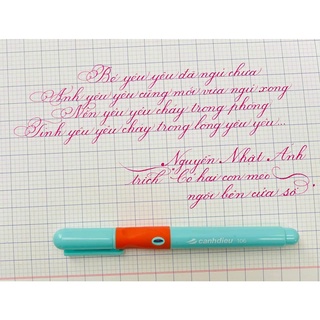 Bé yêu yêu đã ngủ chưa
Anh yêu yêu cũng mới vừa ngủ xong
Nền yêu yêu chảy trong phòng
Tình yêu yêu chảy trong lòng yêu yêu...
Nguyễn Nhật Ánh
trích "Có hai con mèo
ngồi bên cửa sổ"
canhdieu